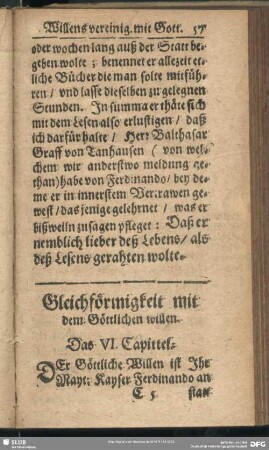 Willens vereinig. mit Gott. 57
oder wochen lang auß der Statt be-
geben wolte / benennet er allezeit et-
liche Bücher die man solte mitfüh-
ren / vnd lasse dieselben zu gelegnen
Stunden. In summa er thäte sich
mit dem Lesen also erlustigen / daß
ich darfür halte / Herr Balthasar
Graff von Tanhausen (von wel-
chem wir anderstwo meldung ge-
than) habe von Ferdinando / bey de-
me er in innerstem Vertrawen ge-
west / das jenige gelehrnet / was er
bißweiln zusagen pfleget: Daß er
nemblich lieber deß Lebens / als
deß Lesens gerahten wolte.
Gleichförmigkeit mit
dem Göttlichen willen.
Das VI. Capittel.
DEr Göttliche Willen ist Ihr
Mayt: Kayser Ferdinando an
C 5 statt
SLUB
DFG